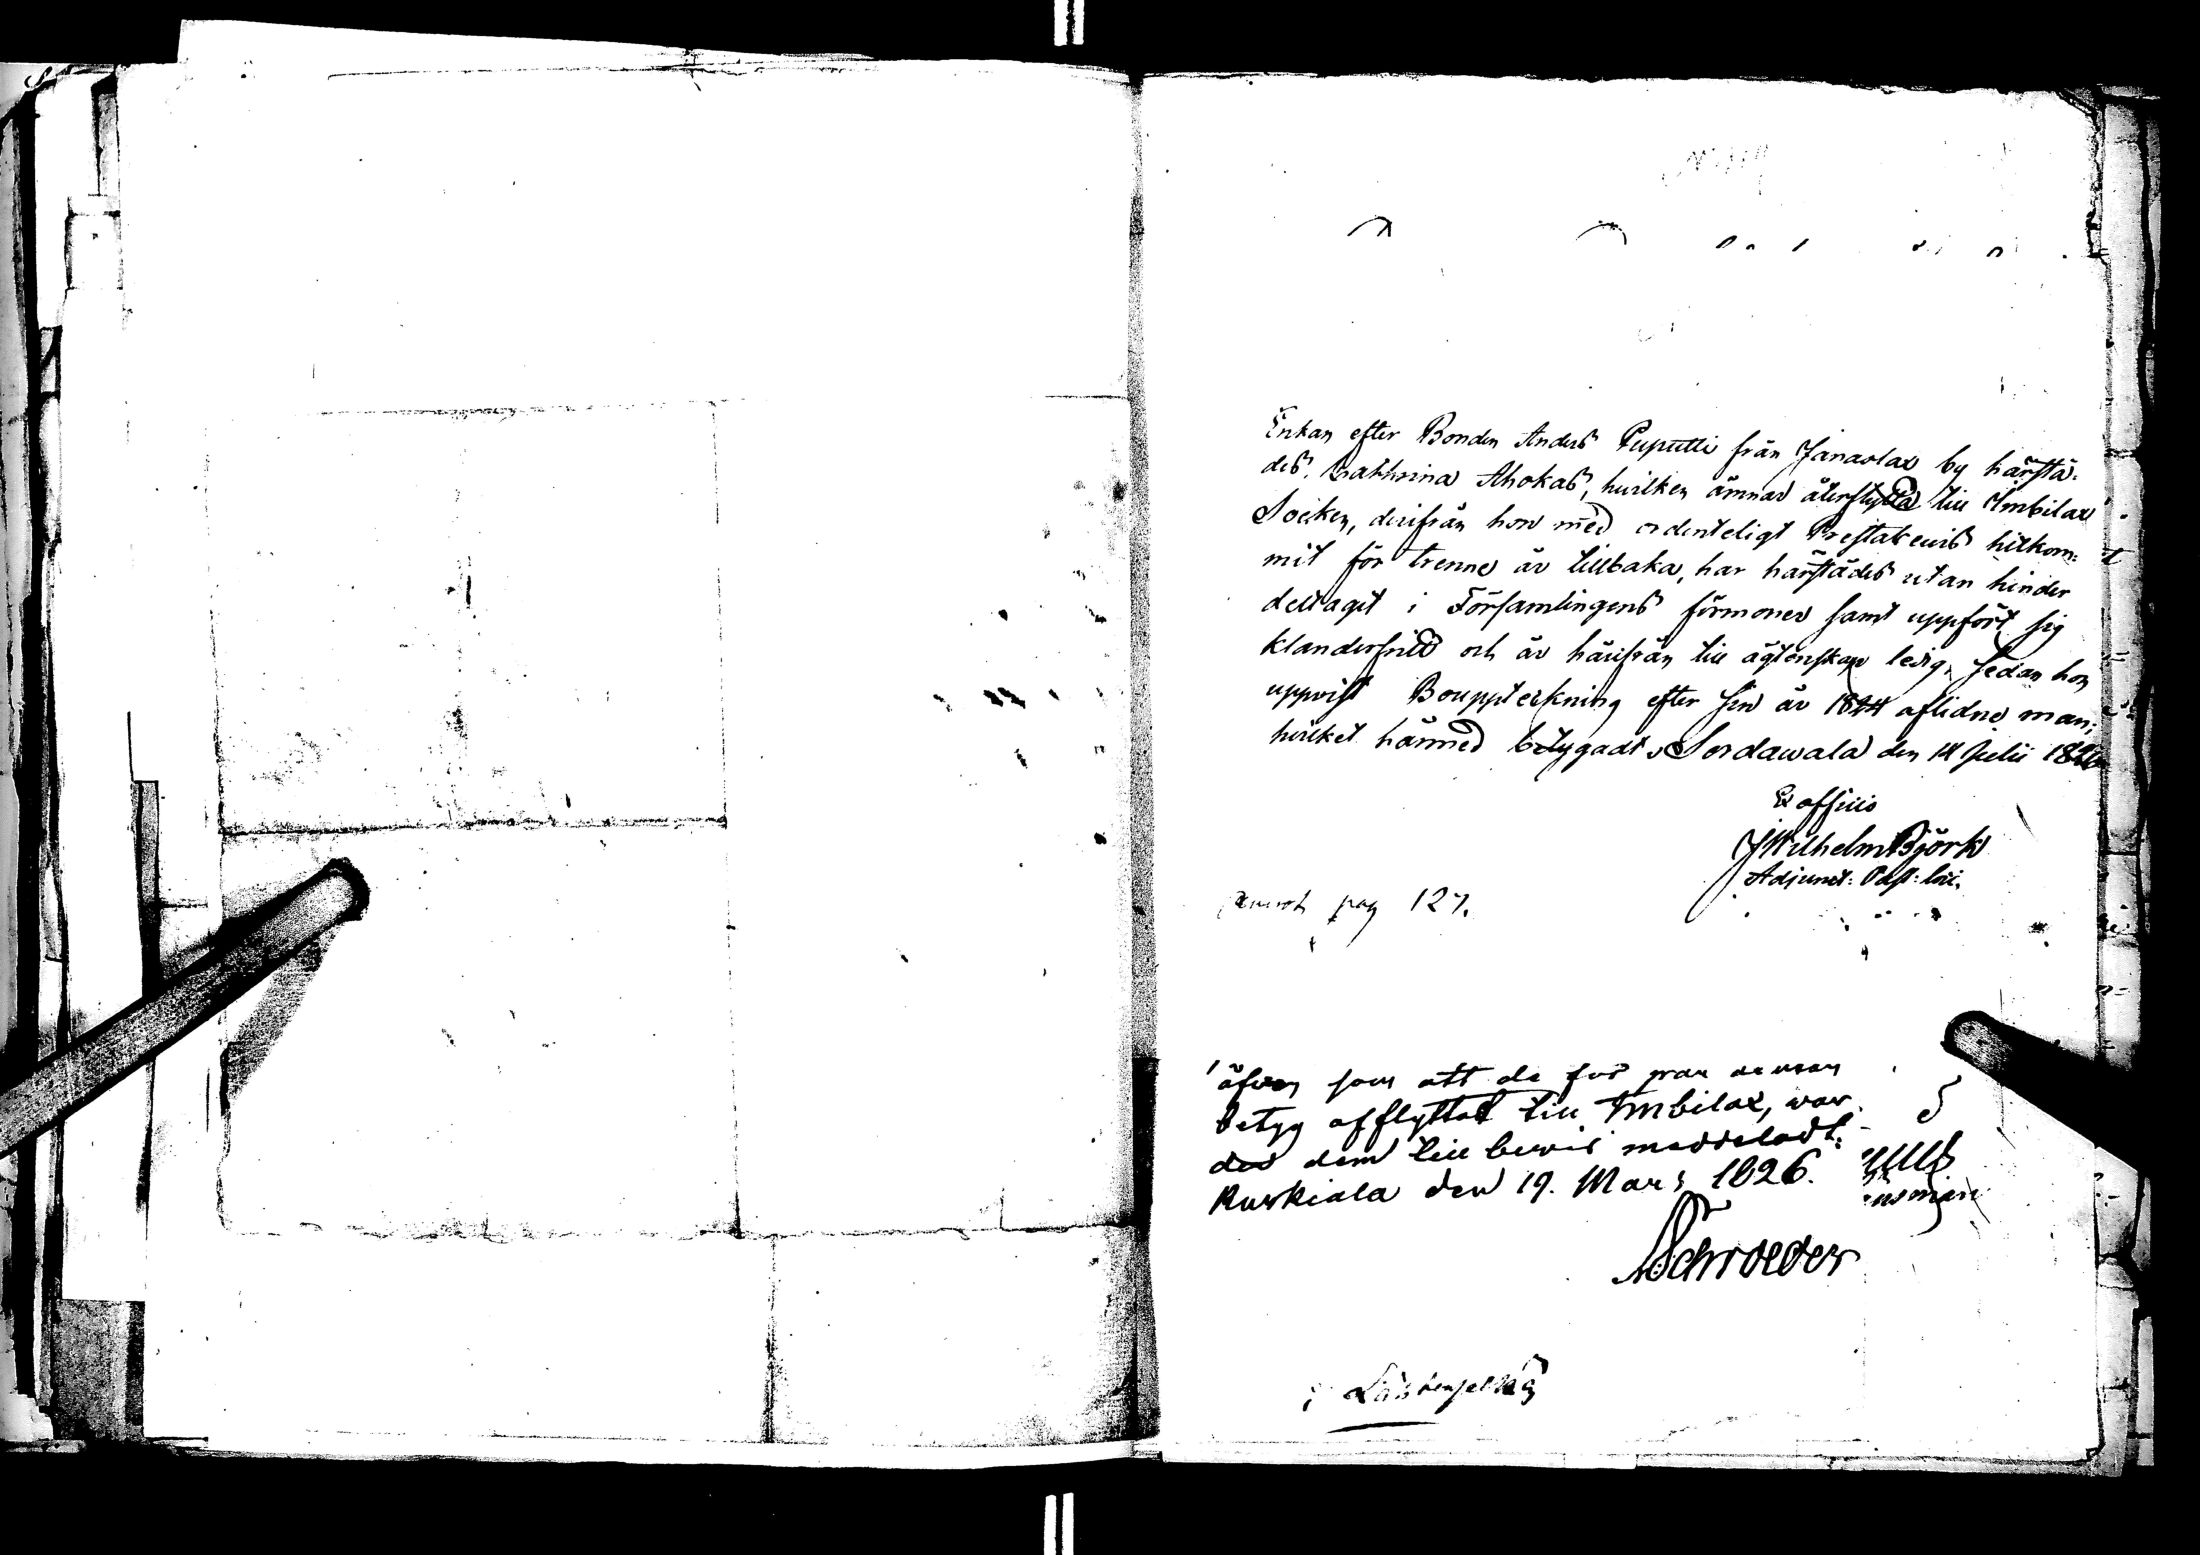 Enkan efter Bonden Anders Puputti från Janaslax by härstä-
des, Cathrina Ahokas, hvilken ämnar återflytta till Imbilax
Socken, derifrån hon med ordenteligt Prestabevis hitkom-
mit för trenne år tillbaka, har härstädes utan hinder
deltagit i Församlingens förmoner samt uppfört sig
klanderfritt och är härifrån till ägtenskap ledig, sedan hon
uppvist Bouppteckning efter sin år 1824 aflidne man;
hvilket härmed betygadt. Sordawala den 14 Julii 1826
Ex officio
J Wilhelm Björk
Adjunct: Past: loci.
pag 127.
äfven som att de för
betyg afflyttat till Imbilax, war
der dem till bevis meddeladt.
Ruskiala den 19. Mars 1826.
Schroeder